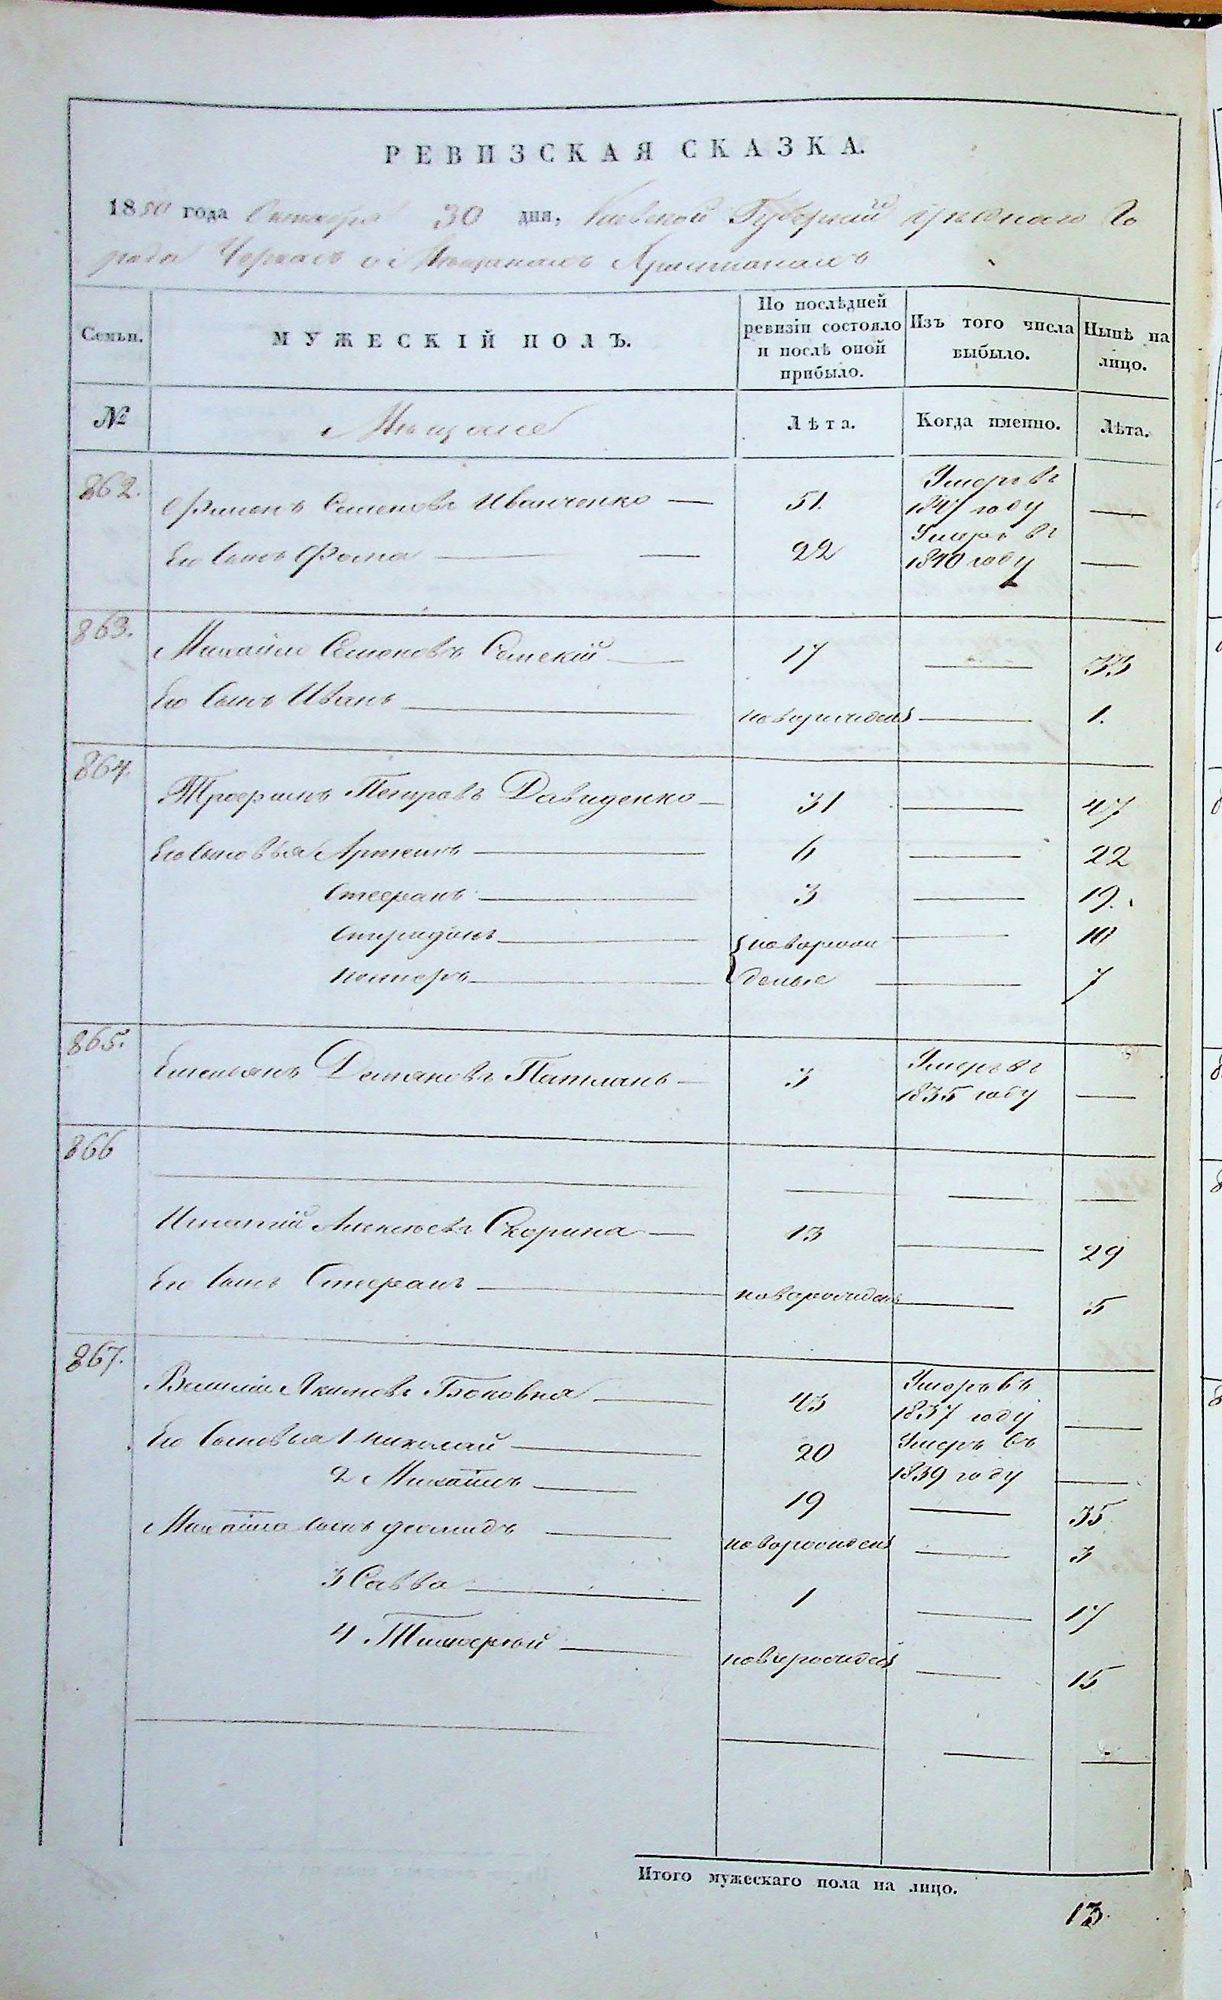 РЕВИЗСКАЯ СКАЗКА.
1850 года Октября 30 дня, Киевской Губернии уезднаго Го
рода Черкас о Мещанах Христианахъ
Семьи. МУЖЕСКІЙ ПОЛЪ. По послѣдней ревизіи состояло и послѣ оной прибыло. Изъ того числа выбыло. Нынѣ на лицо.
№ Мещане Лѣта. Когда именно. Лѣта.
862. Филипъ Семеновъ Иванченко — 51. Умеръ въ 1847 году —
Его сынъ Фома — 22 Умеръ въ 1840 году —
863. Михайло Семеновъ Семскій — 17 — 33
Его сынъ Иванъ — новорожденъ — 1.
864. Трофимъ Петровъ Давиденко — 31 — 47
Его сыновья Артемъ — 6 — 22
Стефанъ — 3 — 19.
Спиридонъ — новорож — 10
— денные — 7
865. Емельянъ Демяновъ Патланъ — 3 Умеръ въ 1835 году —
866
Игнатій Алексѣевъ Скорина — 13 — 29
Его сынъ Стефанъ — новорожденъ — 5
867. Василій Якимовъ — 43 Умеръ въ 1837 году —
Его сыновья 1 Николай — 20 Умеръ въ 1839 году —
2 Михайло — 19 — 35
Михайла сынъ Діомидъ — новорожденъ — 3
3 Савва — 1 — 17
4 Тимофей — новорожденъ — 15
Итого мужескаго пола на лицо.
13.